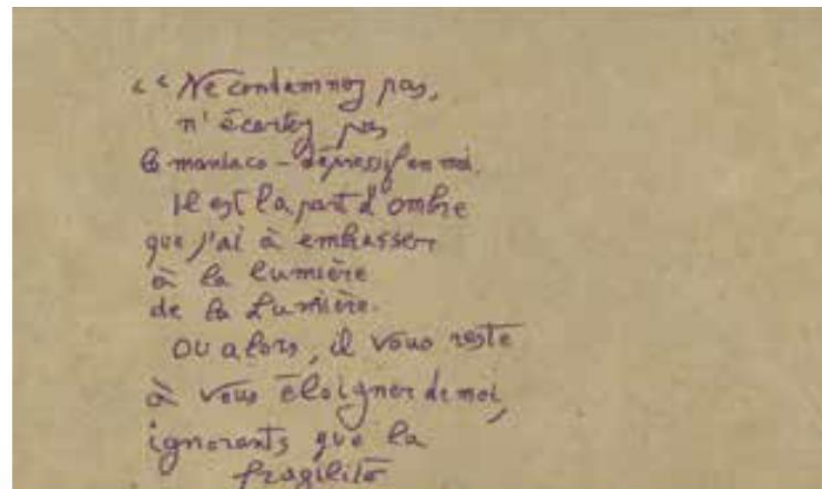 “ Ne condamnez pas,
n'écartez pas
le maniaco-dépressif en moi.
Il est la part d'ombre
que j'ai à embrasser
à la lumière
de la Lumière.
Ou alors, il vous reste
à vous éloigner de moi,
ignorants que la
fragilité